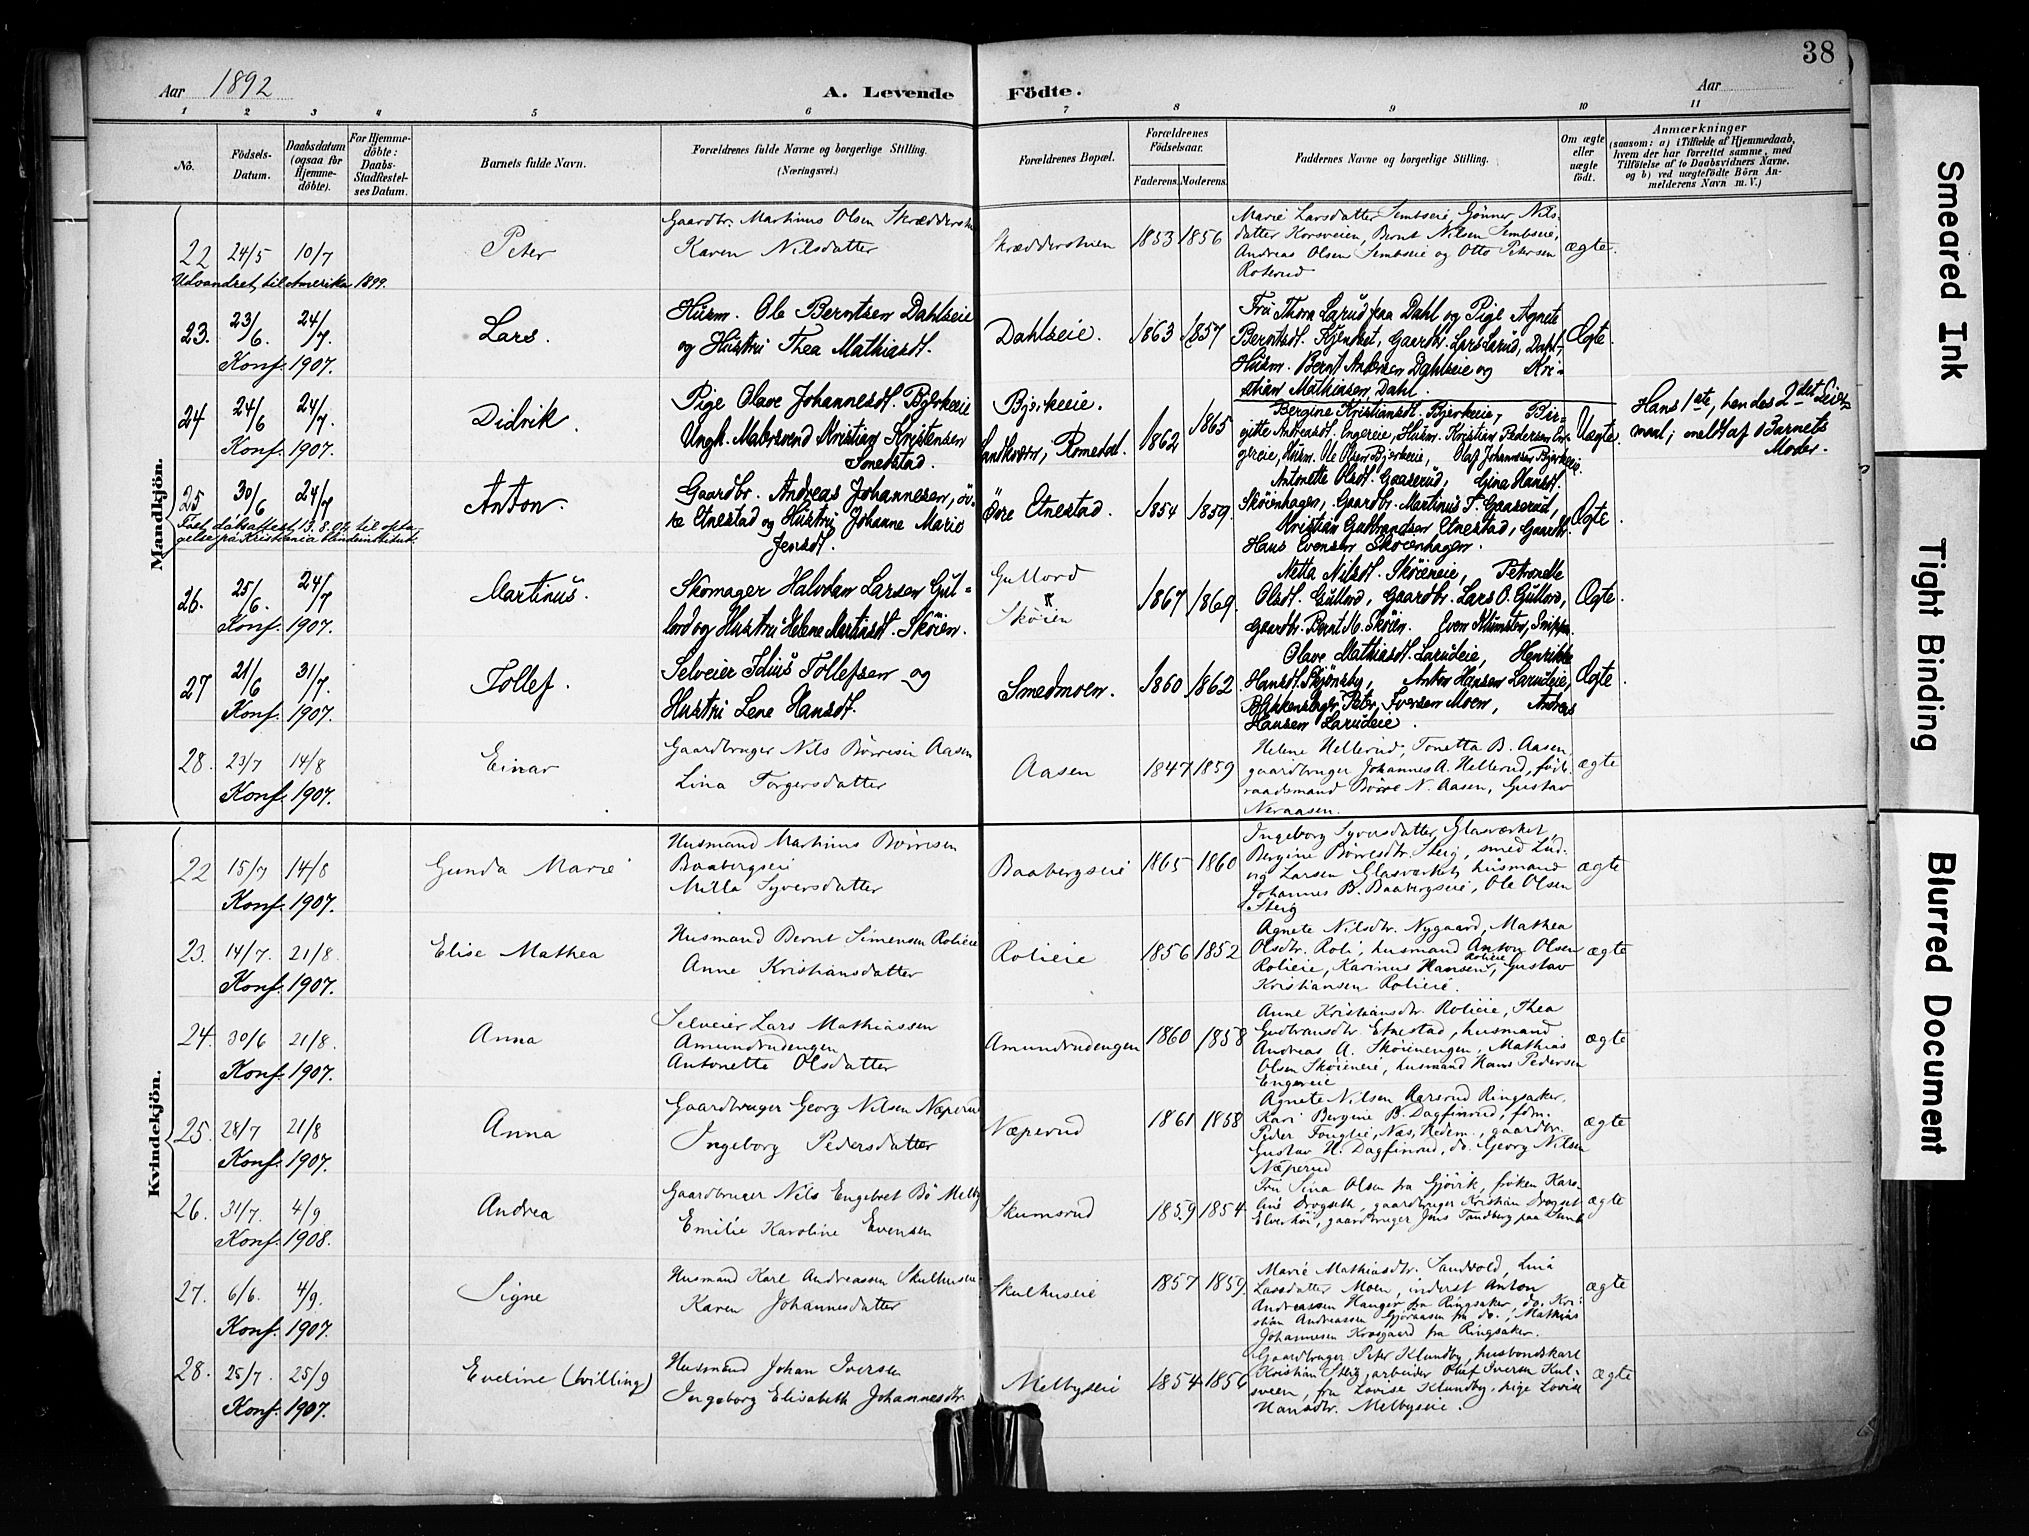 38
Aar 1892 A. Levende Födte. Aar
1 2 3 4 5 6 7 8 9 10 11
No. Födsels-Datum. Daabsdatum (ogsaa for Hjemmedöbte). For Hjemmedöbte: Daabs-Stadfæstelses Datum. Barnets fulde Navn. Forældrenes fulde Navne og borgerlige Stilling. (Næringsvei.) Forældrenes Bopæl. Forældrenes Födselsaar. Faderens. Moderens. Faddernes Navne og borgerlige Stilling. Om ægte eller uægte födt. Anmærkninger (saasom: a) i Tilfælde af Hjemmedaab, hvem der har forrettet samme, med Tilföielse af to Daabsvidners Navne. og b) ved uægtefödte Börn Anmelderens Navn m. V.)
Mandkjön.
22 24/5 10/7 Peter Gaardbr. Martinus Olsen Skrædderstuen
Karen Nilsdatter Skrædderstuen 1853 1856
Marie Larsdatter Sembseie, Gönner Nils-
datter Korsveien, Bernt Nilsen Sembseie,
Andreas Olsen Sembseie og Otto Petersen
Roterud ægte.
Udvandret til Amerika 1899.
23. 23/6. 24/7. Lars. Husm. Ole Berntsen Dahlseie
og Hustru Thea Mathiasdt. Dahlseie. 1863 1857
Fru Thora Larud paa Dahl og Pige Agnete
Berntsdt. Kjendset, Gaardbr. Lars Larud, Dahl,
Husm. Bernt Andersen Dahlseie og Kri-
stian Mathiasen Dahl. Ægte.
Konf. 1907.
24 24/6 24/7. Didrik. Pige Olave Johannesdt. Bjerkeeie
Ungk. Malersvend Kristian Kristensen
Smedstad. Bjerkeeie.
Romedal. 1862 1865
Bergine Kristiansdt. Bjerkeeie, Bir-
gitte Andreasdt. Engereie, Husm. Kristian Pedersen En-
gereie, Husm. Ole Olsen Bjerkeeie, Olaf Johannesen Bjerkeeie. Uægte.
Hans 1ste, hendes 2det Leier-
maal; meldt af Barnets
Moder.
Konf. 1907.
25 30/6 24/7 Anton. Gaardbr. Andreas Johannesen, öv-
re Etnestad og Hustru Johanne Marie
Jensdt. Öore Etnestad. 1854 1859.
Antonette Olsdt. Gaaserud, Gina Hansdt.
Skøienhagen, Gaardbr. Martinus T. Gaaserud,
Kristian Gulbrandsen Etnestad, Gaardbr.
Hans Evensen Skøienhagen. Ægte.
Faet dåbsattest 13.8.07 til opta-
gelse på Kristiania blindeinstitut.
26. 25/6. 24/7 Martinus. Skomager Halvdan Larsen Gul-
lord og Hustru Helene Martinsdt. Skøien. Gullord
x
Skøien 1867 1869.
Netta Nilsdt. Skøieneie, Petronelle
Olsdt. Gullord, Gaardbr. Lars O. Gullord,
Gaardbr. Bernt M. Skøien. Even Munster, Snippen. Ægte.
Konf. 1907.
27 21/6 31/7. Tollef. Selveier Idius Tollefsen og
Hustru Lene Hansdt. Smedmoen. 1860 1862
Olave Mathiasdt. Larudeie, Henrikke
Hansdt. Skjönsby, Anton Hansen Larudeie,
Peter Iversen Moen, Andreas
Hansen Larudeie. Ægte.
Konf. 1907.
28. 23/7 14/8 Einar Gaardbruger Nils Börresen Aasen
Lina Torgersdatter Aasen 1847 1859
Helene Hellerud, Tonetta B. Aasen,
gaardbruger Johannes A. Hellerud, föde-
raadsmand Börre N. Aasen, Gustav
Neraasen. ægte
Konf. 1907.
Kvindekjön.
22 15/7 14/8 Gunda Marie Husmand Martinus Börresen
Baabergseie
Milla Syversdatter Baabergseie 1865 1860
Ingeborg Syversdatter Glasværket,
Bergine Börresdtr. Sterg, smed Lud-
vig Larsen Glasværket, husmand
Johannes B. Baabergseie, Ole Olsen
Sterg ægte
Konf. 1907.
23. 14/7. 21/8. Elise Mathea Husmand Bernt Simensen Rolieie
Anne Kristiansdatter Rolieie 1856 1852
Agnete Nilsdtr. Nygaard, Mathea
Olsdtr. Roli, husmand Anton Olsen
Rolieie, Karinus Hansen Rolieie, Gustav
Kristiansen Rolieie. ægte
Konf. 1907.
24. 30/6 21/8. Anna Selveier Lars Mathiassen
Amundrudengen
Antonette Olsdatter Amundrudengen 1860 1858
Anne Kristiansdtr. Rolieie, Thea
Gudbransdtr. Etnestad, husmand
Andreas A. Skøienengen, Mathias
Olsen Skøieneie, husmand Hans Pedersen
Engereie ægte
Konf. 1907.
25. 28/7 21/8 Anna Gaardbruger Georg Nilsen Næperud
Ingeborg Pedersdatter Næperud 1861 1858
Agnete Nilsen Aarsrud Ringsaker,
Kari Bergine B. Dagfinrud, fdm.
Peder Fouglie, Næs, Hedem., gaardbr.
Gustav H. Dagfinrud, do. Georg Nilsen
Næperud ægte
Konf. 1907.
26. 31/7. 4/9 Andrea Gaardbruger Nils Engebret Bö Melby
Emilie Karoline Evensen Skumsrud 1859 1854
Fru Lina Olsen fra Gjövik, fröken Karo-
line Drogseth, gaardbruger Kristian Drogset
Elverhöi, gaardbruger Jens Tandberg paa Semb ægte
Konf. 1908.
27. 6/6. 4/9. Signe Husmand Karl Andreassen Skulhuseie
Karen Johannesdatter Skulhuseie 1857 1859.
Marie Mathiasdtr. Sandvold, Lina
Larsdatter Moen, inderst Anton
Andreassen Hanger fra Ringsaker, do. Kri-
stian Andreassen Gjöraasen fra do., Mathias
Johannesen Krosgaard fra Ringsaker. ægte
Konf. 1907.
28. 25/7. 25/9 Eveline (tvilling) Husmand Johan Iversen
Ingeborg Elisabeth Johannesdtr. Melbyseie 1854 1856
Gaardbruger Peter Klundby, husbondskarl
Kristian Sterg, arbeider Oluf Iversen Kul-
sveen, fru Lovise Klundby, pige Lovise
Hansdtr. Melbyseie. ægte
Konf. 1907.
Smeared Ink
Tight Binding
Blurred Document